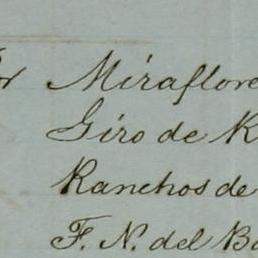 or Miraflore
Giro de K
Ranchos de
F. N. del Ba